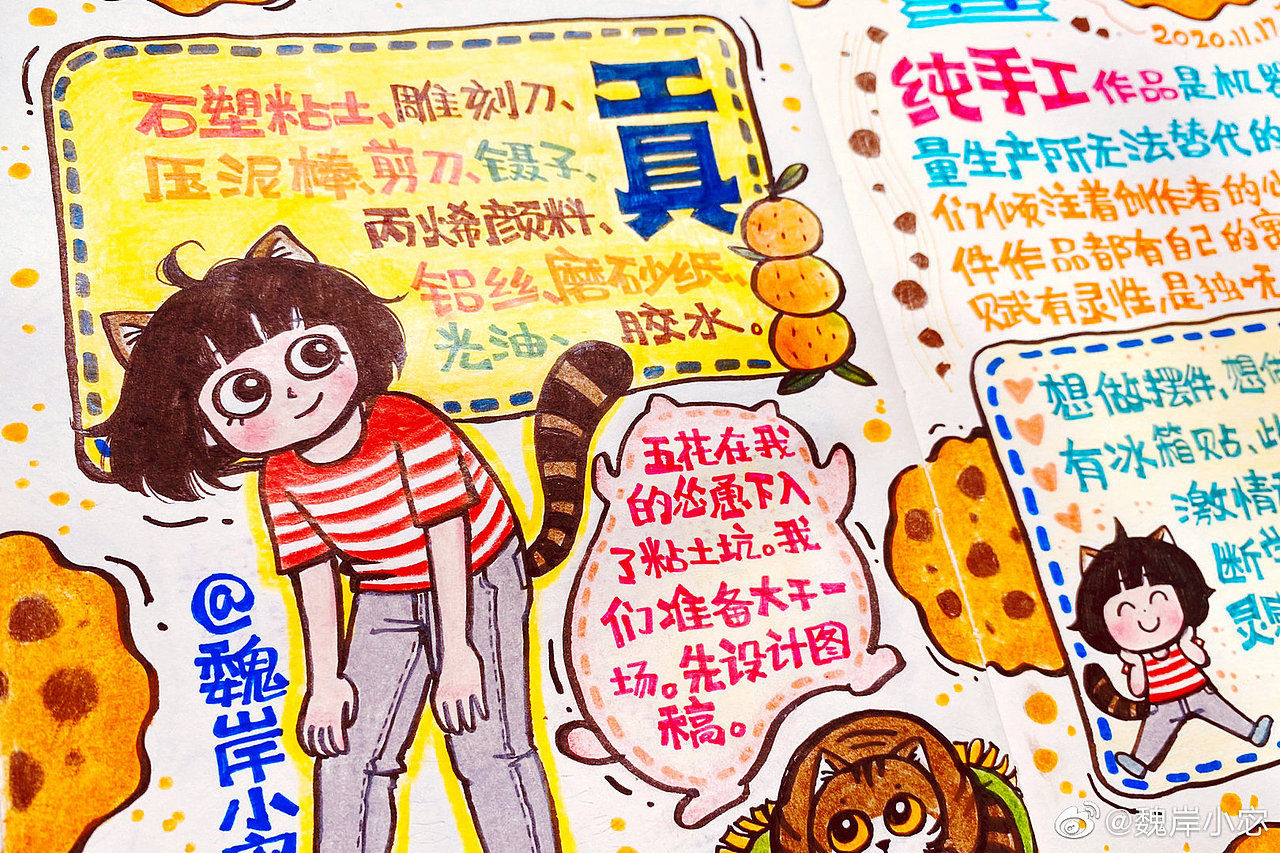 工具
石塑粘土、雕刻刀、
压泥棒、剪刀、镊子、
丙烯颜料、
铝丝、磨砂纸、
光油、胶水。
五花在我
的怂恿下入
了粘土坑。我
们准备大干一
场。先设计图
稿。
@魏岸小
2020.11.17
纯手工作品是机器
量生产所无法替代的
们倾注着创作者的心
件作品都有自己的寓
赋有灵性,是独一无
想做摆件,想做
有冰箱贴、此
激情
断
灵
@魏岸小宓